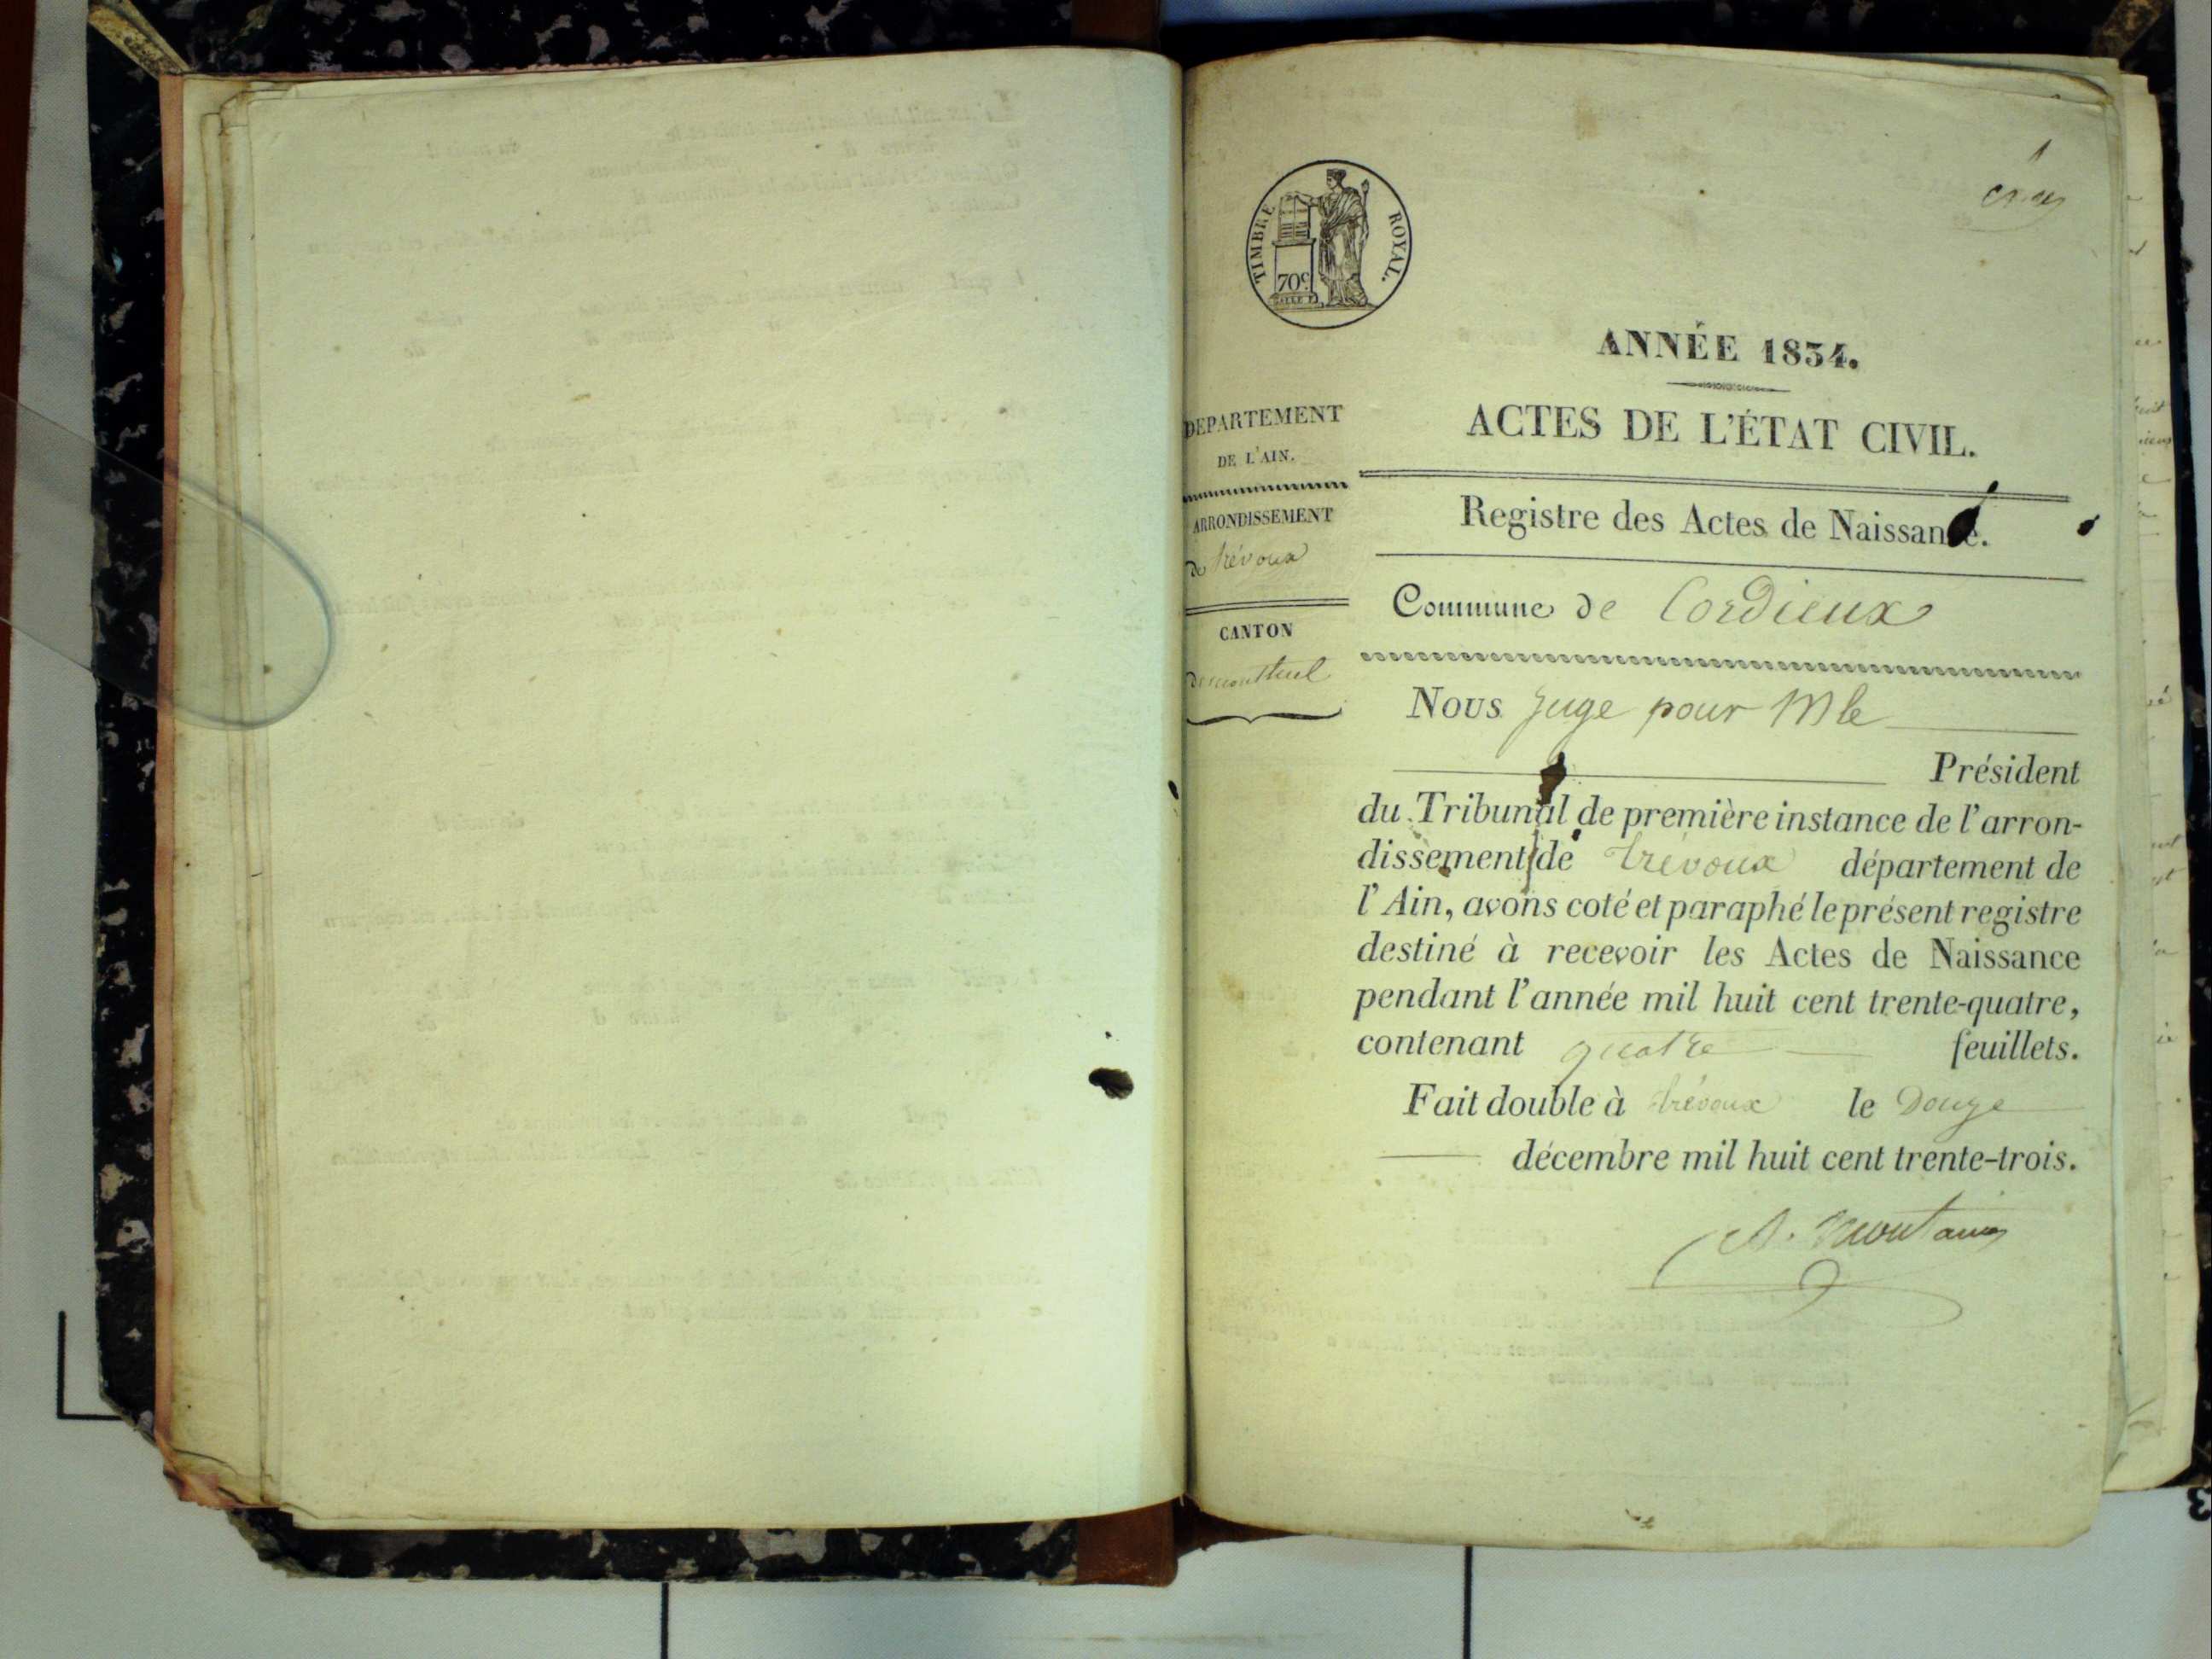 1
TIMBRE ROYAL.
70c
ANNÉE 1834.
ACTES DE L'ÉTAT CIVIL.
DEPARTEMENT
DE L'AIN.
ARRONDISSEMENT
de trévoux
CANTON
de montluel
Registre des Actes de Naissance.
Commune de Cordieux
Nous juge pour Mle
Président
du Tribunal de première instance de l'arron-
dissement de trévoux département de
l'Ain, avons coté et paraphé le présent registre
destiné à recevoir les Actes de Naissance
pendant l'année mil huit cent trente-quatre,
contenant quatre feuillets.
Fait double à trévoux le Douze
décembre mil huit cent trente-trois.